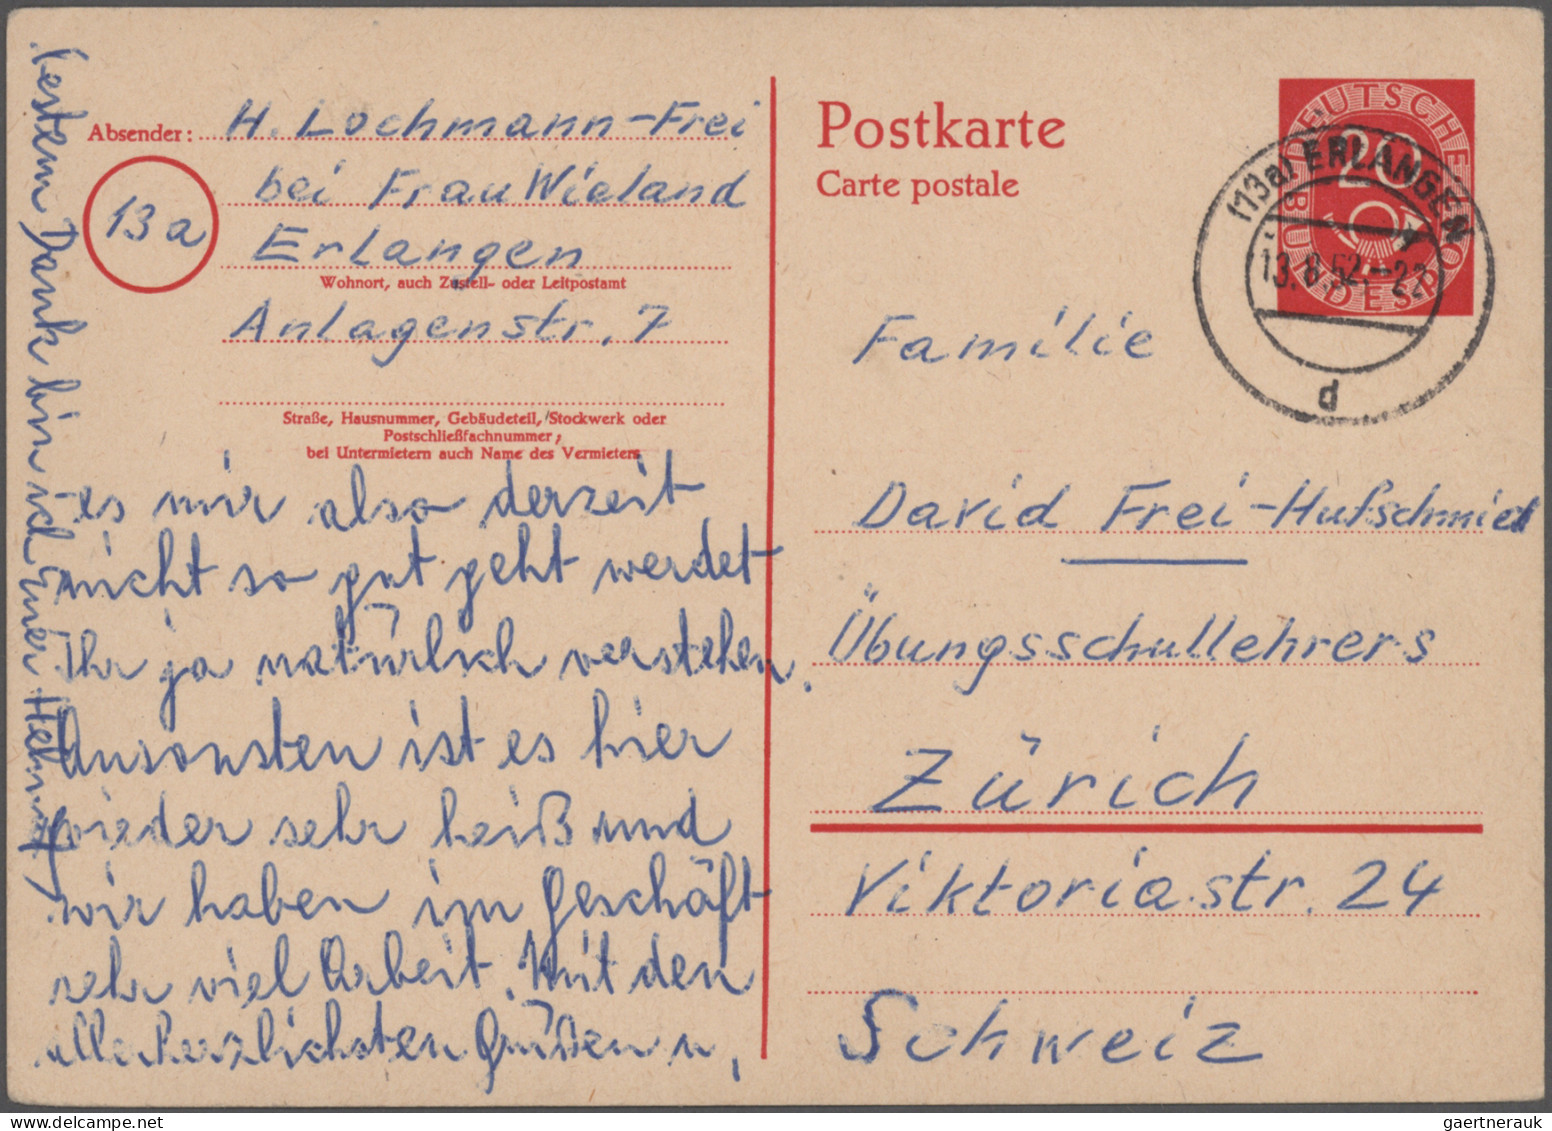 Absender: H. Lochmann-Frei
bei Frau Wieland
13a
Erlangen
Wohnort, auch Zustell- oder Leitpostamt
Anlagenstr. 7
Straße, Hausnummer, Gebäudeteil, Stockwerk oder
Postschließfachnummer,
bei Untermietern auch Name des Vermieters
es mir also derzeit
nicht so gut geht werdet
Ihr ja natürlich verstehen.
Ansonsten ist es hier
wieder sehr heiß und
wir haben im Geschäft
sehr viel Arbeit. Mit den
allerherzlichsten Grüßen u.
bestem Dank bin ich Euer Helmut
Postkarte
Carte postale
DEUTSCHE BUNDESPOST
20
(13a) ERLANGEN
13.8.52.-22
d
Familie
David Frei-Hufschmied
Übungsschullehrers
Zürich
Viktoriastr. 24
Schweiz
gaertnerauk